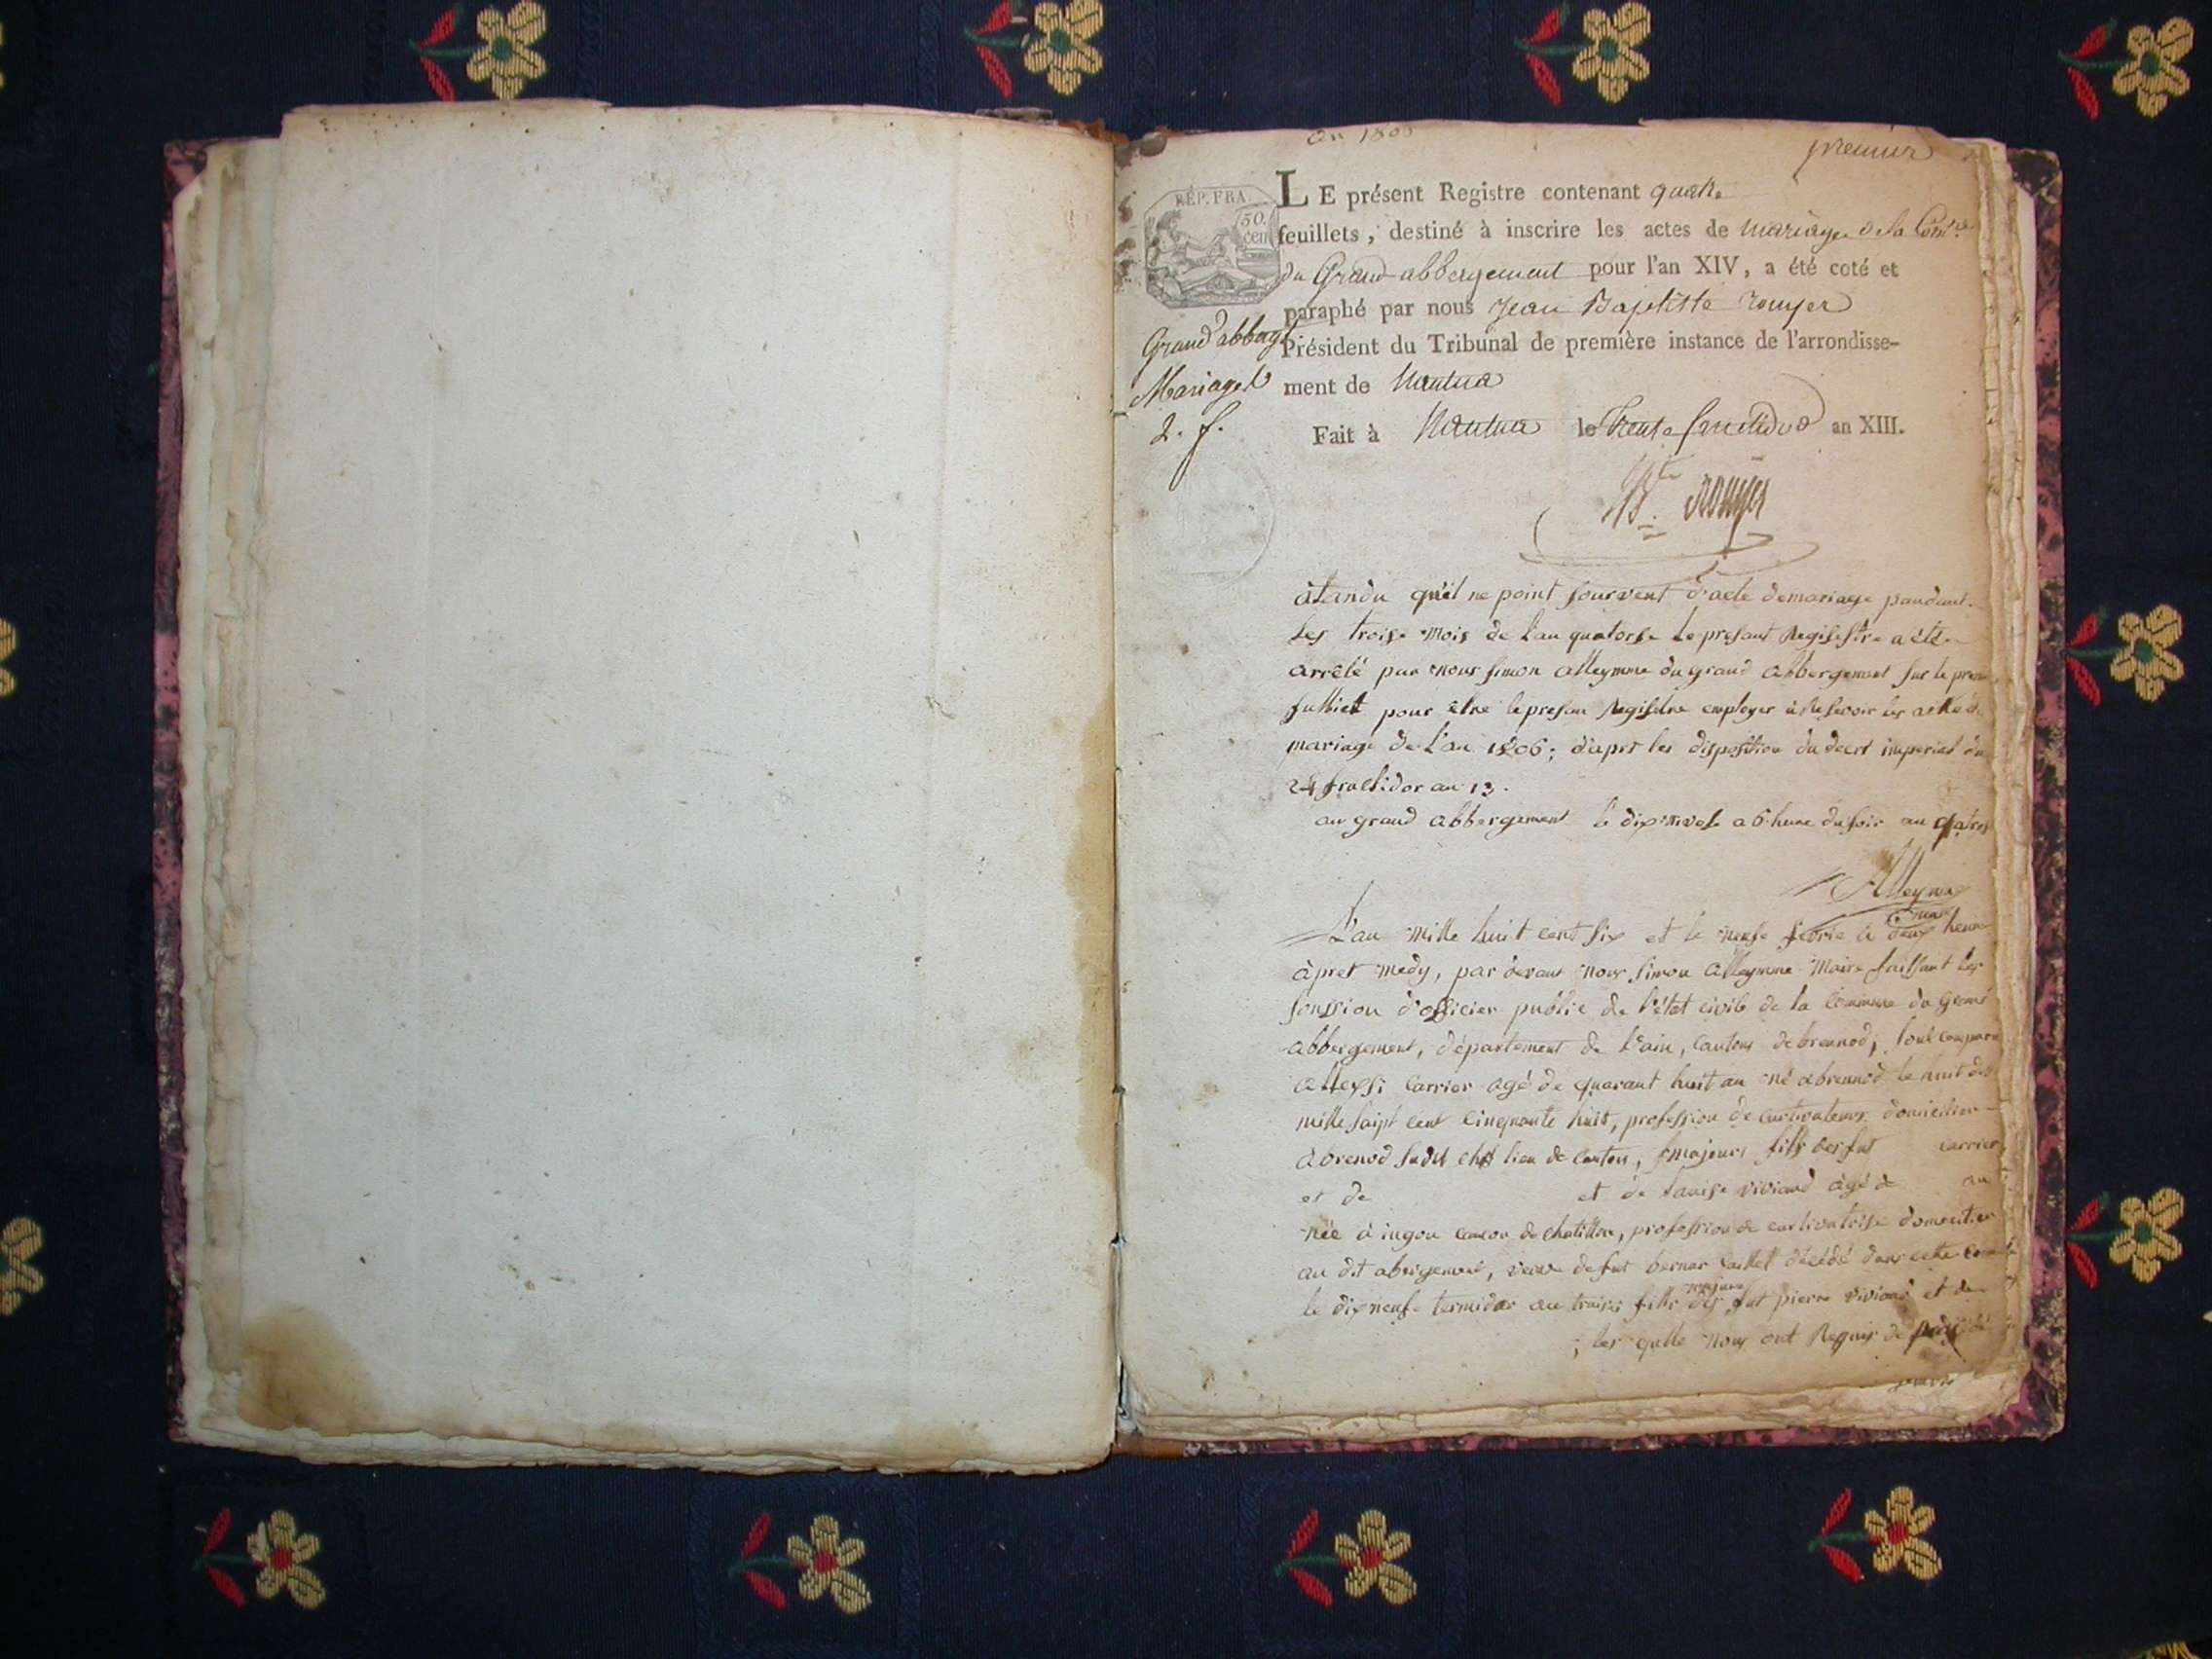 an 180
premier
RÉP. FRA
50.
cen
LE présent Registre contenant quatre
feuillets, destiné à inscrire les actes de mariage de la Comne
du Grand abbergement pour l'an XIV, a été coté et
paraphé par nous Jean Baptiste rouyer
Président du Tribunal de première instance de l'arrondisse-
ment de Nantua
Fait à Nantua le trente fructidor an XIII.
Grand abberg
Mariages
2. f.
Bte rouyer
àtandu quil ne point sourvent d'acte de mariage pandant
les troise mois de l'an quatorse le presant Regisestre a été
arrêlé par nous simon alleymme du grand abbergement sur le prem
fulliet pour être le presan Regisstre employer à Resevoir les actes de
mariage de l'an 1806; d'apret les disposition du decrt imperial du
24 fructidor an 13.
au grand abbergement le dix nivose a 6 hure du soir an qatros
Alleymme
maire
L'an mille huit cent six et le neufe fevrie à deux heure
àpret medy, par devant nous simon alleymme Maire faissant les
fonssion d'officier public de l'état civile de la commune du grand
abbergement, département de l'ain, cantons de brennod, sont comparu
allexsi carrier agé de quarant huit an né a brennod le huit
mille saipt cent cinquante huit, profession de curtivateur domicilier
a brenod sudit chef lieu de canton, majeur fils des fut carrier
et de et de Louise viviand àgé de an
née à ingou de chatillon, profession de curtivatrise domicilier
au dit abergement, veuve de fut bernar caillet décédé dans cette
le dixneufe termidor an traise fille majeure des fut pierre viviand et de
; les quelle nous ont Requis de